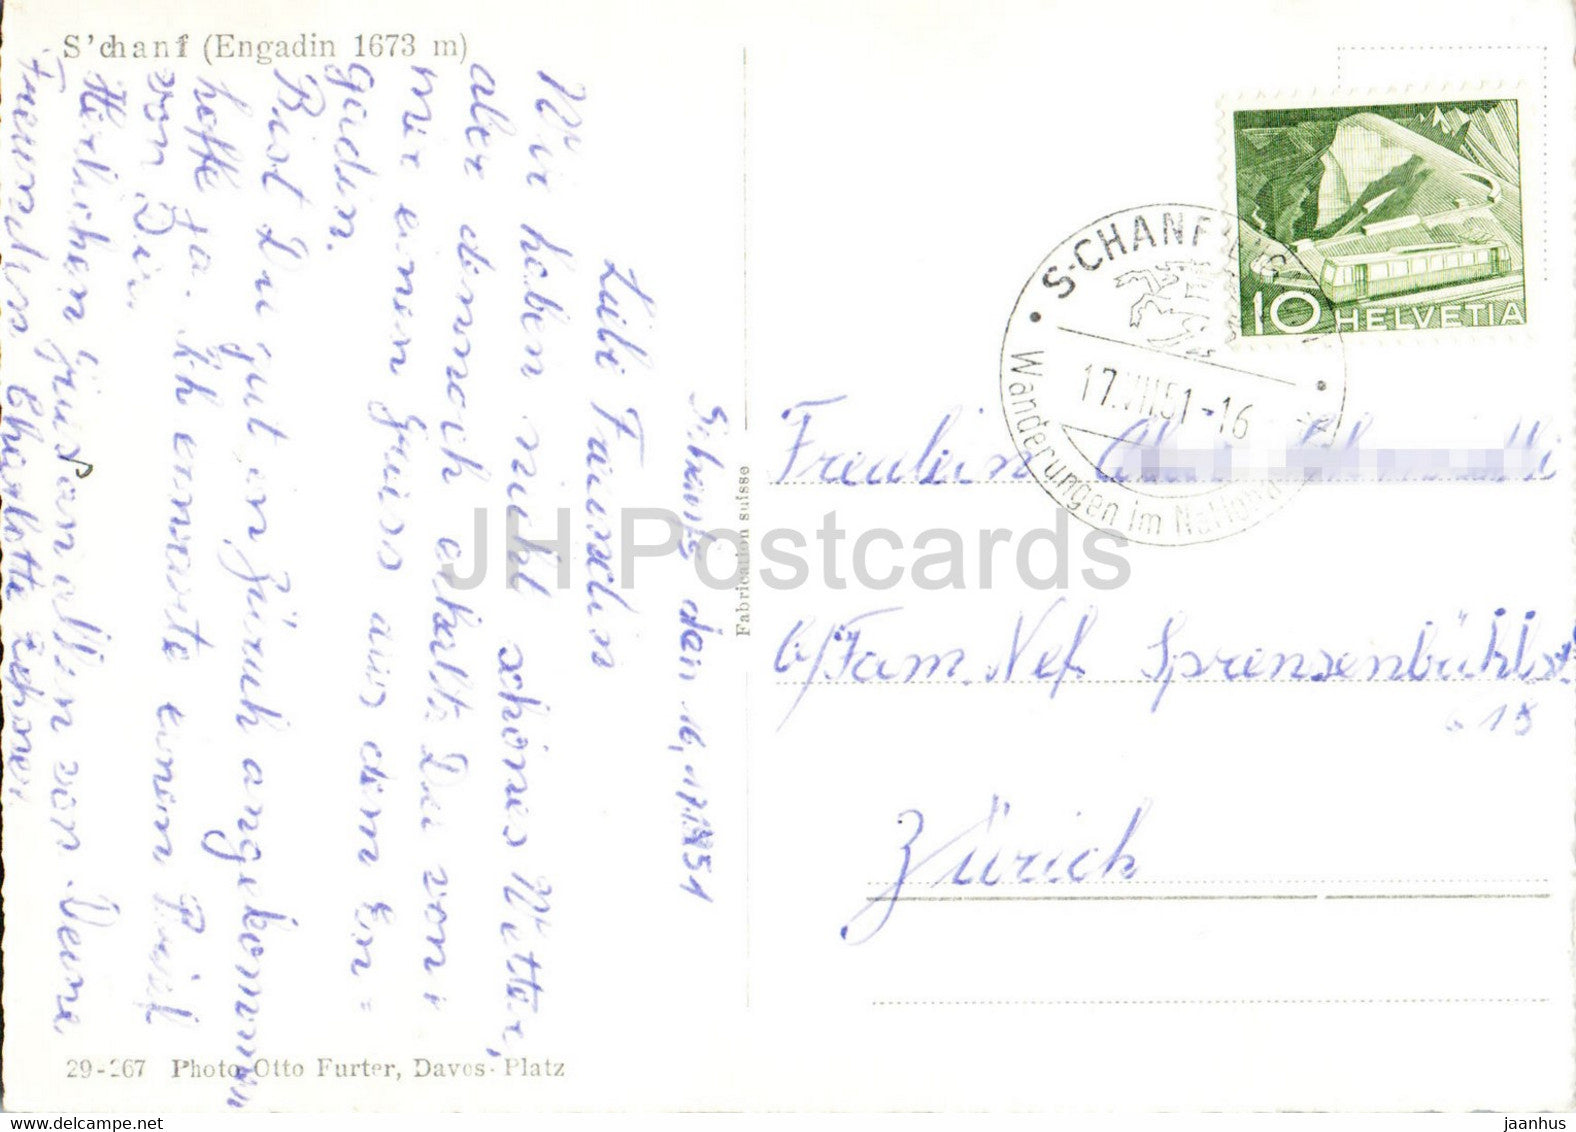 S'chanf (Engadin 1673 m)
den 16,
1951
Liebe Freundin
Wir haben nicht schönes Wetter,
aber dennoch erhältst Du von
mir einen Gruss aus dem En=
gadin.
Bist Du gut in Zürich angekommen
hoffe ja. Ich erwarte einen Brief
von Dir.
Herzlichen Gruss an allen von Deine
Freundin Charlotte
29-267 Photo Otto Furter, Davos-Platz
Fabrication suisse
JH Postcards
S-CHANF
17.VIII.51-16
Wanderungen im National
10 HELVETIA
Freulein
c/Fam. Nef. Sprensenbühlst.
Zürich
hip.delcampe.net/jaanhus